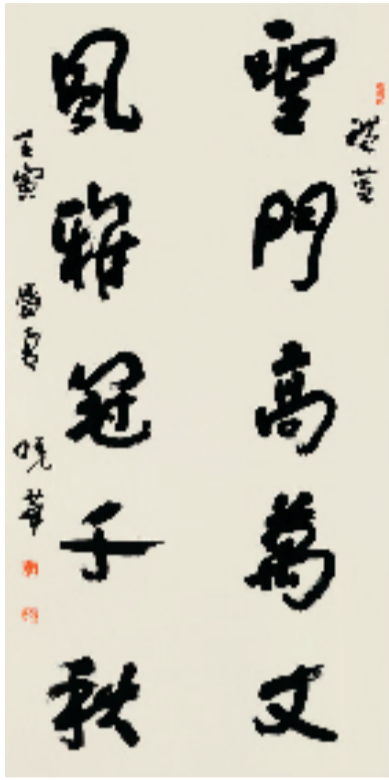 聖門高萬丈
風雅冠千秋
壬寅 盛夏 曉華